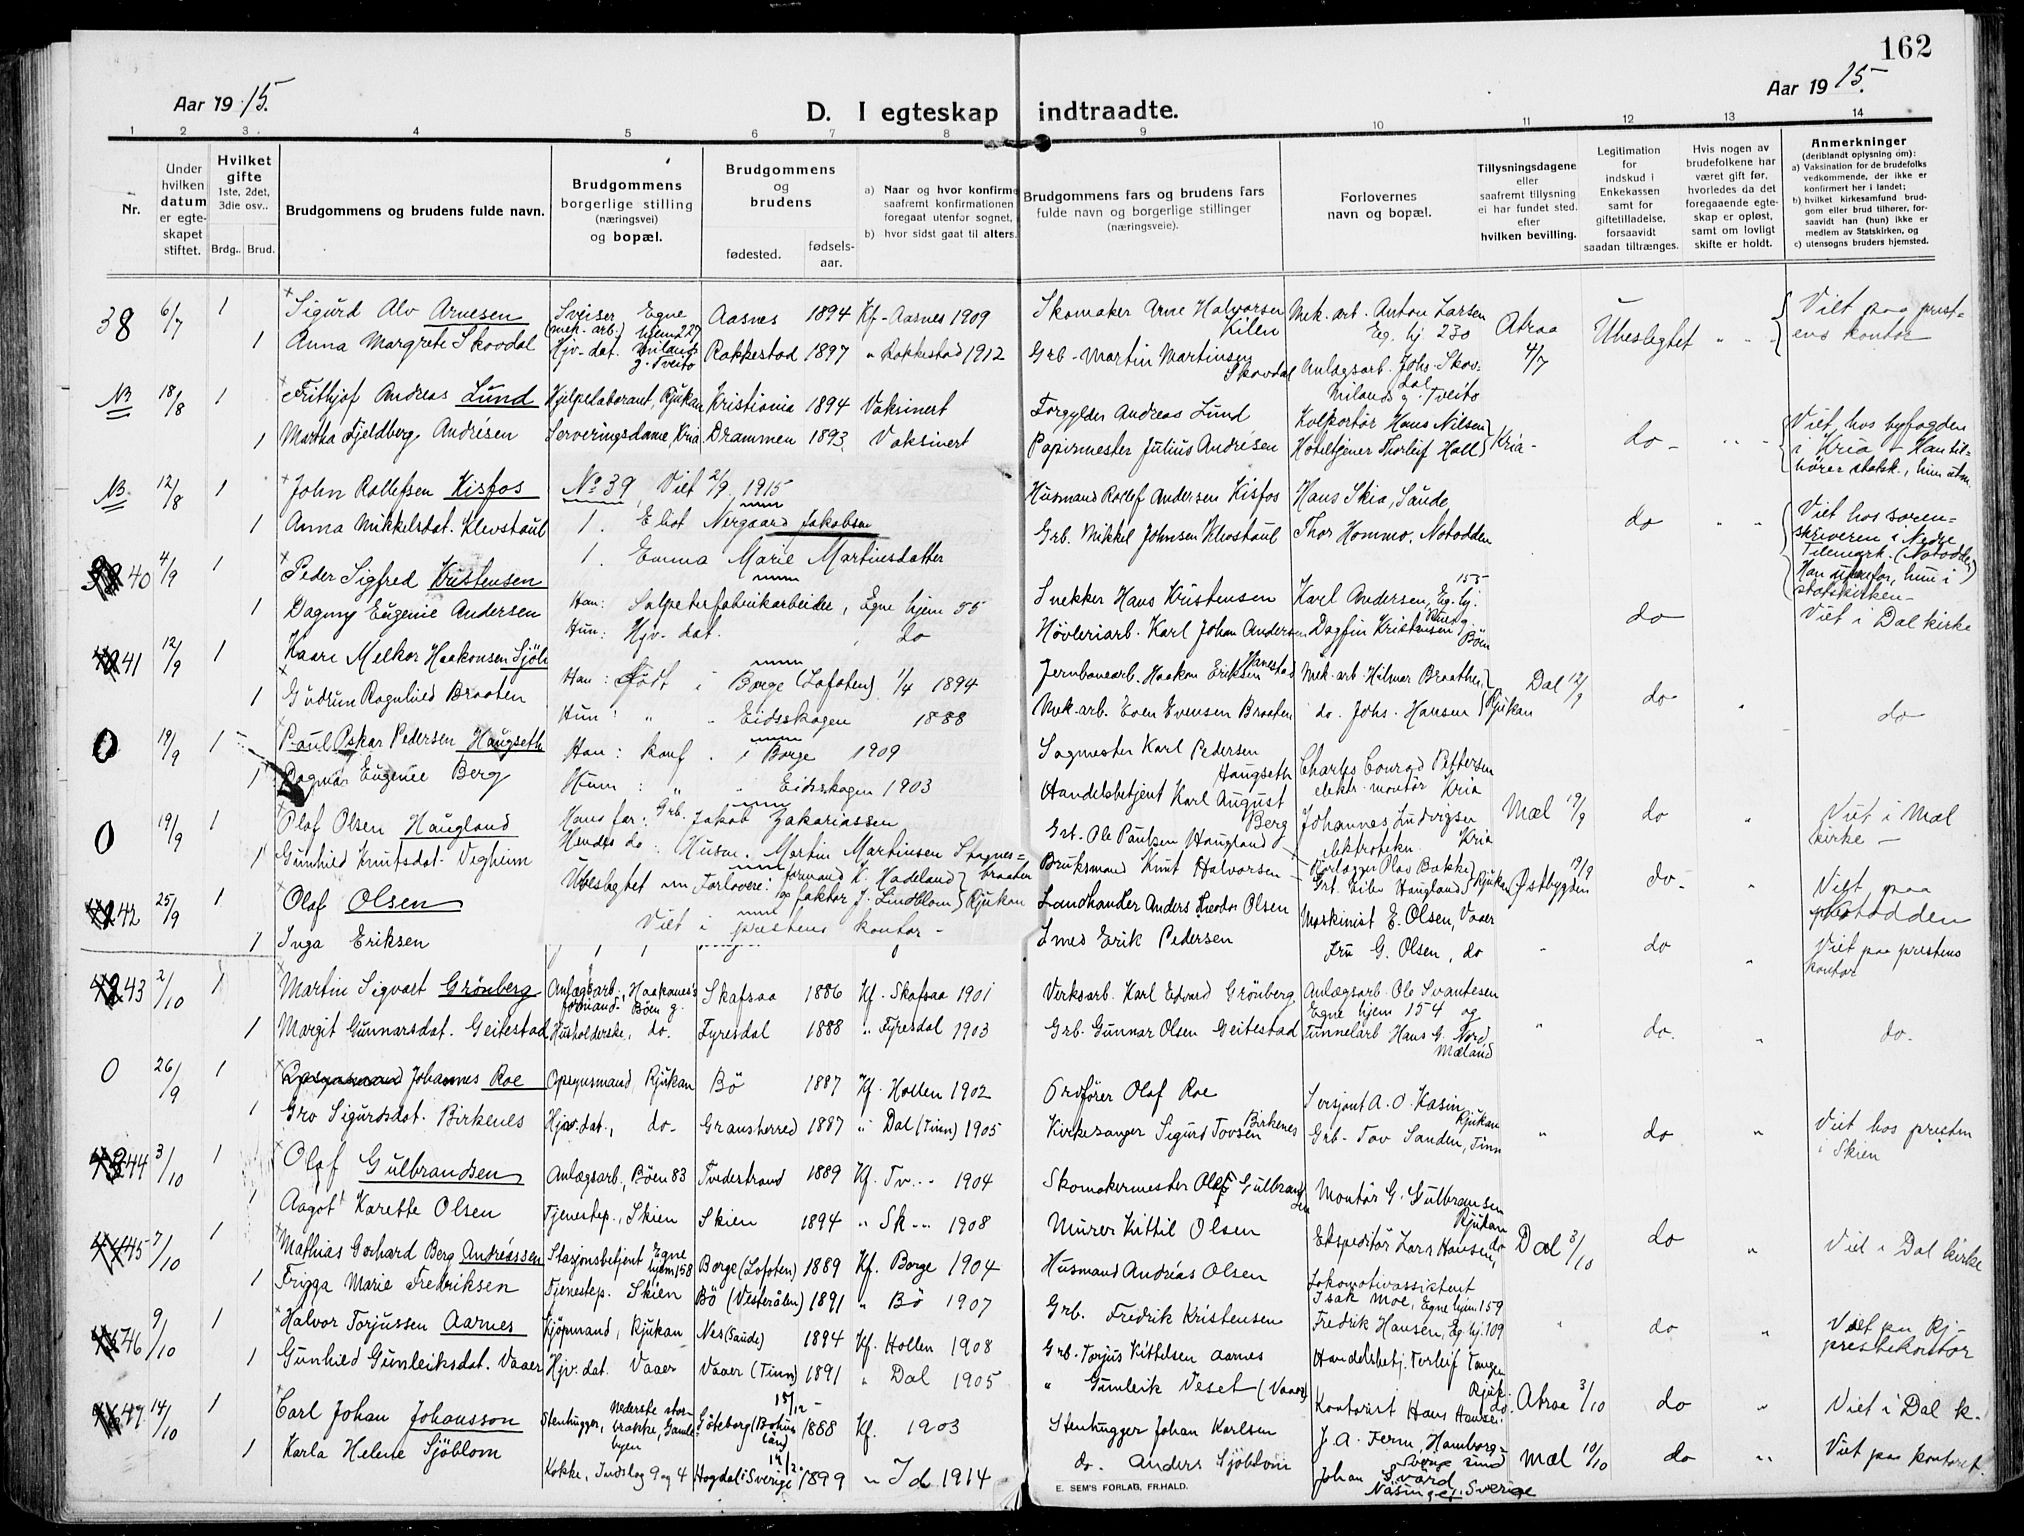 162
Aar 1915.
Aar 1915.
D. I egteskap indtraadte.
1 2 3 4 5 6 7 8 9 10 11 12 13 14
Nr.
Under hvilken datum er egteskapet stiftet.
Hvilket gifte
1ste, 2det, 3die osv..
Brdg.. Brud.
Brudgommens og brudens fulde navn.
Brudgommens borgerlige stilling (næringsvei) og bopæl.
Brudgommens og brudens
fødested. fødselsaar.
a) Naar og hvor konfirme
saafremt konfirmationen
foregaat utenfor sognet,
b) hvor sidst gaat til alters.
Brudgommens fars og brudens fars
fulde navn og borgerlige stillinger
(næringsveie).
Forlovernes
navn og bopæl.
Tillysningsdagene
eller
saafremt tillysning
ei har fundet sted.
efter
hvilken bevilling.
Legitimation
for
indskud i
Enkekassen
samt for
giftetilladelse,
forsaavidt
saadan tiltrænges.
Hvis nogen av
brudefolkene har
været gift før,
hvorledes da det
foregaaende egte-
skap er opløst,
samt om lovligt
skifte er holdt.
Anmerkninger
(deriblandt oplysning om):
a) Vaksination for de brudefolks
vedkommende, der ikke er
konfirmert her i landet;
b) hvilket kirkesamfund brud-
gom eller brud tilhører, for-
saavidt han (hun) ikke er
medlem av Statskirken, og
c) utensogns bruders hjemsted.
38 6/7 1 Sigurd Alv Arnesen Sveiser (mek. arb.) Egne hjem 227 Aasnes 1894 Kf. Aasnes 1909 Skomaker Arne Halvorsen Kilen Mek. art. Anton Larsen Eg. hj 230 Atraa 4/7 Ubeslegtet " " Viet paa prestens kontor
1 Anna Margrete Skovdal Hjv.-dat. Milands g. Tveito Rakkestad 1897 " Rakkestad 1912 Grb. Martin Martinsen Skovdal Anlægsarb. Johs. Skovdal Milands g. Tveito
NB 18/8 1 Frithjof Andreas Lund Hjelpelaborant, Rjukan Kristiania 1894 Vaksinert Forgylder Andreas Lund Kolportør Hans Nilsen Kria - do - Viet hos byfogden i Kria - Han tilhører statsk., hun utm.
1 Martha Fjeldberg Andrésen Serveringsdame, Kria Drammen 1893 Vaksinert Papirmester Julius Andrésen Hoteltjener Thorleif Hall
NB 12/8 1 John Rollefsen Kisfos Husmand Rollef Andersen Kisfos Hans Skia, Saude do " " Viet hos sorenskriveren i Nedre Telemark. (Notodden) Han utenfor, hun i statskirken -
1 Anna Mikkelsdat. Klevstaul Grb. Mikkel Johnsen Klevstaul Thor Hommo, Notodden
No 39 Viet 2/9 1915
1. Eliot Nergaard Jakobsen
1. Emma Marie Martinsdatter
Han: Salpeterfabrikarbeider, Egne hjem 55
Hun: Hjv. dat. do
Han: Født i Borge (Lofoten) 1/4 1894
Hun: " " Eidsskogen 1888
Han: konf. i Borge 1909
Hun: " " Eidsskogen 1903
Hans far: Grb. Jakob Zakariassen
Hendes do: Husm. Martin Martinsen Stagnesbraaten
Ubeslegtet Forlovere: formand K. Hadeland og faktor J. Lindblom Rjukan
Viet i prestens kontor -
40 4/9 1 Peder Sigfred Kristensen Snekker Hans Kristensen Karl Andersen, Eg. hj. 155 do Viet i Dal kirke
1 Dagmy Eugenie Andersen Høvleriarb. Karl Johan Andersen Dagfin Kristensen Bøen
41 12/9 1 Kaare Melkor Haakonsen Sjöli Jernbanearb. Haakon Eriksen Hanestad Mek. arb Hilmar Braathen, Rjukan Dal 12/9 do " do
1 Gudrun Ragnhild Braaten Mek. arb. Even Evensen Braaten do. Johs. Hansen
0 19/9 1 Paul Oskar Pedersen Haugseth Sagmester Karl Pedersen Haugseth Charles Conrad Pettersen elektr. montør Kria Mæl 19/9 do " Viet i Mæl kirke -
1 Dagmar Eugenie Berg Handelsbetjent Karl August Berg Johannes Ludvigsen elektrotekn. Kria
0 19/9 1 Olaf Olsen Haugland Grt. Ole Paulsen Haugland Rørlægger Olav Bakke Rjukan Østbygden 19/9 do. " Viet paa Notodden
1 Gunhild Knutsdat. Vegheim Bruksmand Knut Halvorsen Grt. Eilev Haugland
42 25/9 1 Olaf Olsen Landhandler Anders Theodor Olsen Maskinist E. Olsen, Vaaer " do " Viet paa prestens kontor
1 Inga Eriksen Smed Erik Pedersen Fru G. Olsen, do
43 2/10 1 Martin Sigvart Grönberg Anlægsarb. formand, Haakanes's Böen g. Skafsaa 1886 Kf. Skafsaa 1901 Verksarb. Karl Edvard Grönberg Anlægsarb. Ole Svantesen Egne hjem 154 og " do. " do.
1 Margit Gunnarsdat. Geitestad Husholderske, do. Fyresdal 1888 " Fyresdal 1903 Grb. Gunnar Olsen Geitestad Tunnelarb Hans G. Nord, Mæland
0 26/9 1 Johannes Roe Opsynsmand, Rjukan Bö 1887 Kf. Hollen 1902 Ordfører Olaf Roe Sersjant A. O. Kasin Rjukan " do " Viet hos presten i Skien
1 Gro Sigurdsdat. Birkenes Hjv. dat., do- Gransherred 1887 " Dal (Tinn) 1905 Kirkesanger Sigurd Tovsen Birkenes Grb. Tov Sanden, Tinn
44 3/10 1 Olaf Gulbrandsen Anlægsarb., Böen 83 Tvedestrand 1889 Kf. Tv. - 1904 Skomakermester Olaf Gulbrandsen Montör G. Gulbransen Rjukan Dal 3/10 do " Viet i Dal kirke
1 Aagot Karette Olsen Tjenestep., Skien Skien 1894 " Sk - 1908 Murer Kittil Olsen Ekspeditör Lars Hansen, do
45 7/10 1 Mathias Gerhard Berg Andréassen Stasjonsbetjent Egne hjem 158 Borge (Lofoten) 1889 Kf. Borge 1904 Husmand Andréas Olsen Lokomotivassistent Isak Moe, Egne hjem 159 " do " Viet paa Rj- prestekontor
1 Frigga Marie Fredriksen Tjenestep. Skien Bö (Vesterålen) 1891 " Bö 1907 Grb. Fredrik Kristensen Fredrik Hansen, Eg. hj. 109
46 9/10 1 Halvor Torjussen Aarnes Kjöpmand, Rjukan Nes (Saude) 1894 Kf. Hollen 1908 Grb. Torjus Kittilsen Aarnes Handelsbetj. Terleif Tangen Rjuk. Atraa 3/10 do " Viet i Dal k.
1 Gunhild Gunleiksdat. Vaaer Hjv. dat. Vaaer Vaaer (Tinn) 1891 " Dal 1905 " Gunleik Veset (Vaaer) Kontorist Hans Hansen do.
47 14/10 1 Carl Johan Johansson Stenhugger, Nederste storbrakke, Gamlebyen Göteborg (Bohus län) 15/12 - 1888 Kf. 1903 Stenhugger Johan Karlsen J. A. Ferm, Hamborgsund Sverige Mæl 10/10 do " Viet paa kontoret
1 Karla Helene Sjöblom Kokke, Indslag 9 og 4 Hogdal i Sverige 14/2 1899 " Id 1914 do. Anders Sjöblom Johan Svärd Näsinge, Sverige
E. SEM'S FORLAG, FR.HALD.